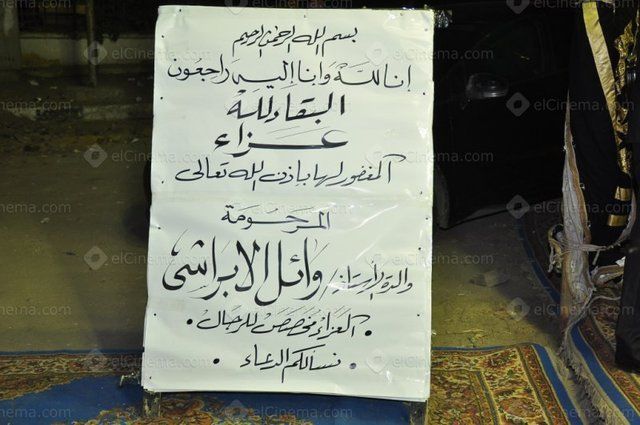 بسم الله الرحمن الرحيم
إنا لله وإنا إليه راجعون
البقاء لله
عزاء
المغفور لها بإذن الله تعالى
المرحومة
والدة الأستاذ/ وائل الابراشى
• العزاء مخصص للرجال •
• نسألكم الدعاء •
elCinema.com